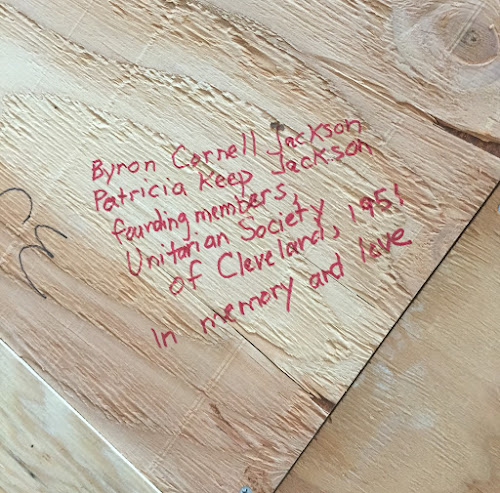 Byron Cornell Jackson
Patricia Keep Jackson
founding members,
Unitarian Society
of Cleveland, 1951
In memory and love